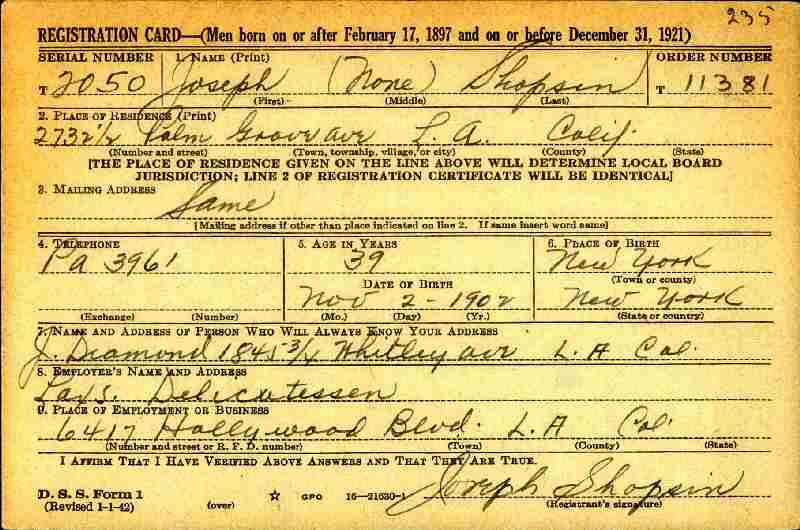 235
REGISTRATION CARD—(Men born on or after February 17, 1897 and on or before December 31, 1921)
SERIAL NUMBER 1. NAME (Print) ORDER NUMBER
T 2050 Joseph (None) Shopsin T 11381
(First) (Middle) (Last)
2. PLACE OF RESIDENCE (Print)
2732½ Palm Grove ave L. A. Calif.
(Number and street) (Town, township, village, or city) (County) (State)
[THE PLACE OF RESIDENCE GIVEN ON THE LINE ABOVE WILL DETERMINE LOCAL BOARD
JURISDICTION; LINE 2 OF REGISTRATION CERTIFICATE WILL BE IDENTICAL]
3. MAILING ADDRESS
Same
[Mailing address if other than place indicated on line 2. If same insert word same]
4. TELEPHONE 5. AGE IN YEARS 6. PLACE OF BIRTH
Pa 3961 39 New York
(Town or county)
DATE OF BIRTH
Nov 2-1902 New York
(Exchange) (Number) (Mo.) (Day) (Yr.) (State or country)
7. NAME AND ADDRESS OF PERSON WHO WILL ALWAYS KNOW YOUR ADDRESS
J. Diamond 1845 3/4 Whitley ave L. A Cal.
8. EMPLOYER'S NAME AND ADDRESS
Delicatessen
9. PLACE OF EMPLOYMENT OR BUSINESS
6417 Hollywood Blvd. L. A Cal.
(Number and street or R. F. D. number) (Town) (County) (State)
I AFFIRM THAT I HAVE VERIFIED ABOVE ANSWERS AND THAT THEY ARE TRUE.
D. S. S. Form 1
(Revised 1-1-42) (over) ☆ GPO 16—21630-1 Joseph Shopsin
(Registrant's signature)